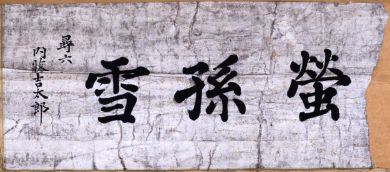 螢孫雪
尋六
吉太郎